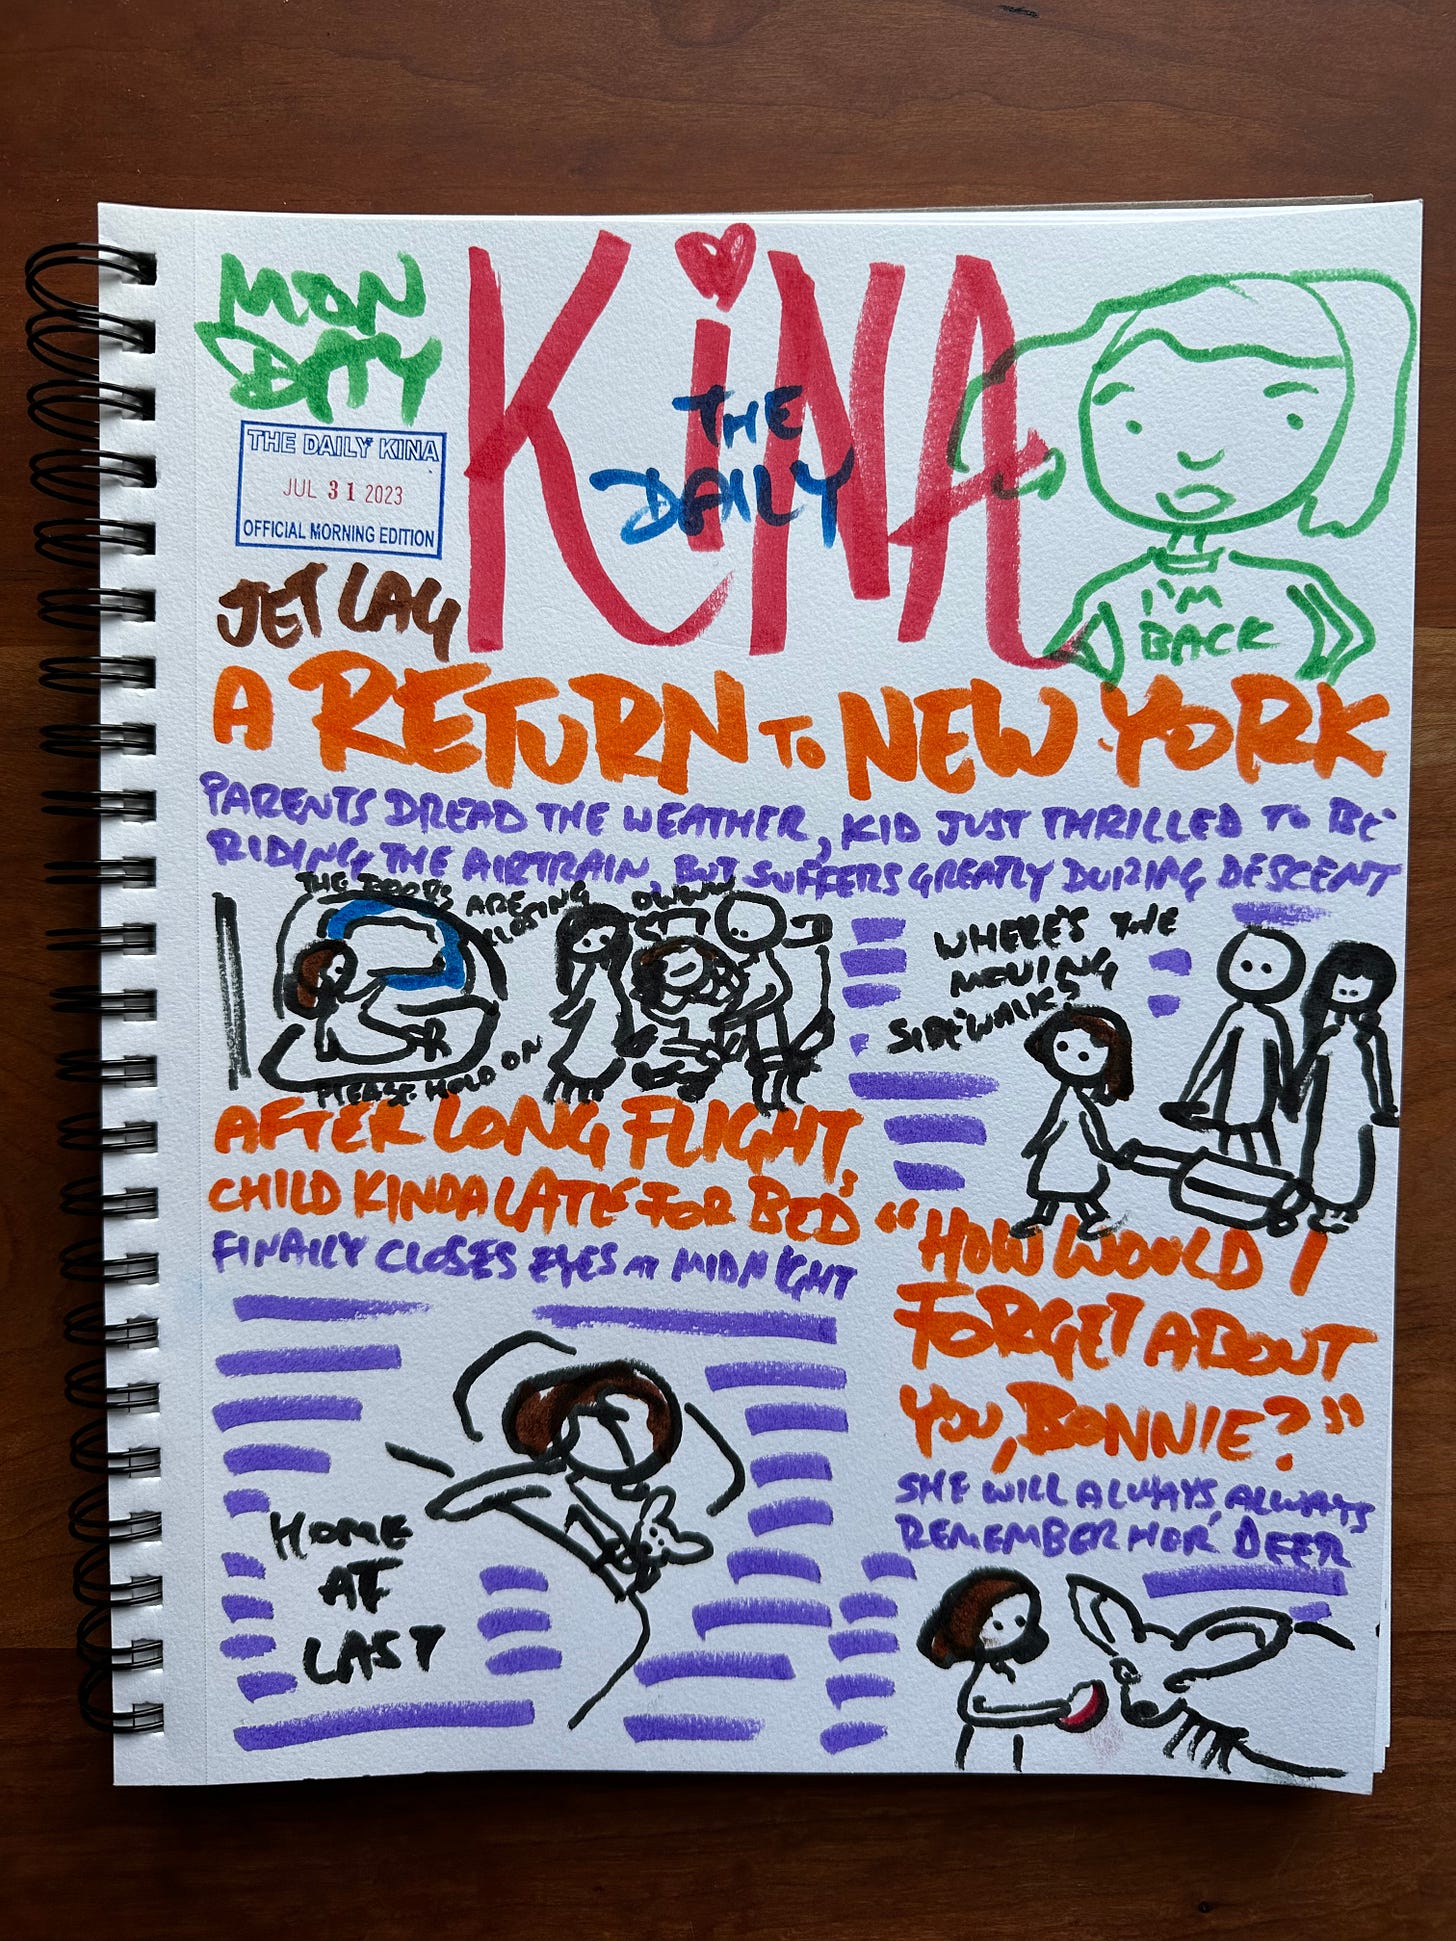 MON
DAY
KiNA
THE
DAILY
THE DAILY KINA
JUL 31 2023
OFFICIAL MORNING EDITION
I'M
BACK
JET LAG
A RETURN TO NEW YORK
PARENTS DREAD THE WEATHER, KID JUST THRILLED TO BE
RIDING THE AIRTRAIN, BUT SUFFERS GREATLY DURING DESCENT
THE DOORS ARE
CLOSING
PLEASE HOLD ON
WHERE'S THE
MOVING
SIDEWALKS
AFTER LONG FLIGHT,
CHILD KINDA LATE FOR BED
FINALLY CLOSES EYES AT MIDNIGHT
HOME
AT
LAST
"HOW WOULD I
FORGET ABOUT
YOU, BONNIE?"
SHE WILL ALWAYS, ALWAYS
REMEMBER HER DEER